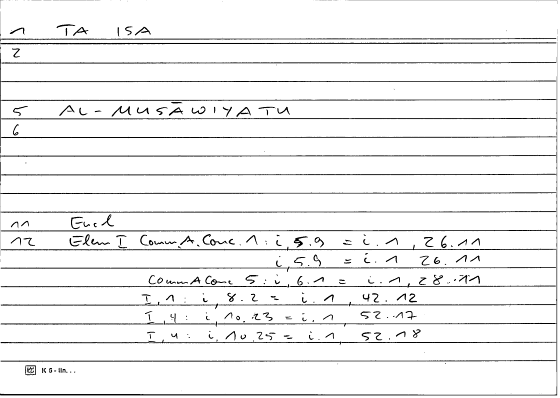 1 TA ISA
2
5 AL-MUSĀWIYATU
6
11 Eucl
12 Elem I Comm.A.Conc. 1 : i, 5.9 = i. 1, 26.11
i, 5.9 = i. 1 26.11
Comm A Conc 5 : i, 6.1 = i. 1, 28.11
I, 1 : i, 8.2 = i. 1, 42.12
I, 4 : i, 10.23 = i. 1, 52.17
I, 4 : i, 10.25 = i. 1, 52.18
K 5 - lin. . .